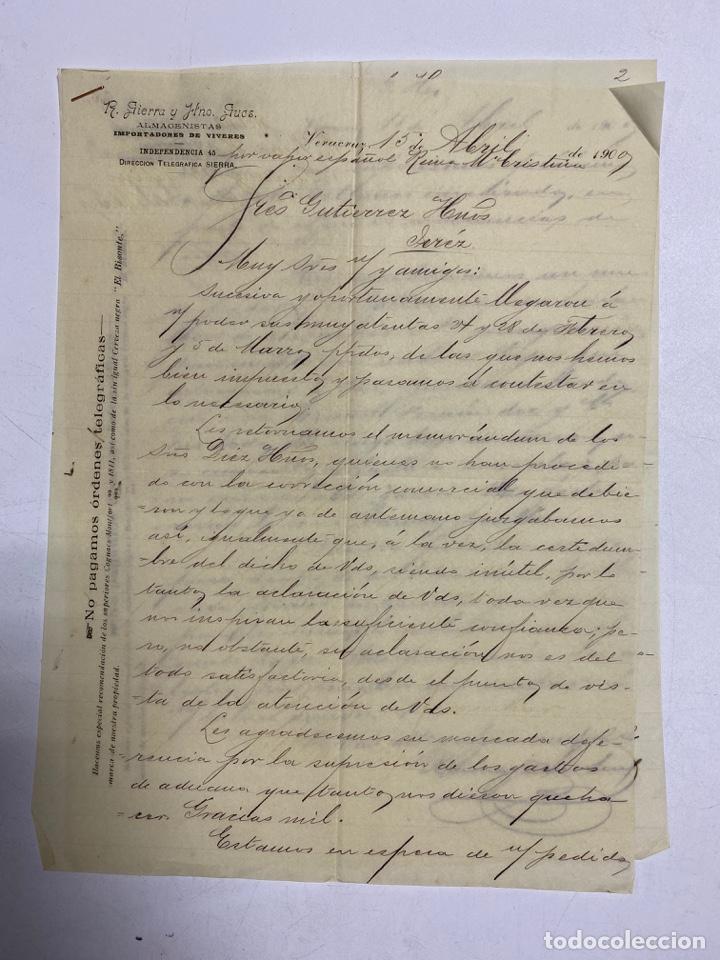 2
R. Sierra y Hno. Sucs.
ALMACENISTAS
IMPORTADORES DE VIVERES
INDEPENDENCIA 45
DIRECCION TELEGRAFICA SIERRA.
Veracruz, 15 de Abril de 1909
por vapor español Reina Ma Cristina
Sres Gutierrez Hnos
Jeréz
Muy Sres n/ y amigos:
Sucesiva y oportunamente llegaron á
n/ poder sus muy atentas 24 y 28 de Febrero y
5 de Marzo, ppdos, de las que nos hemos
bien impuesto y pasamos á contestar en
lo necesario.
Les retornamos el memorándum de los
Sres Diez Hnos, quienes no han procedi-
do con la corrección comercial que debie-
=ron y lo que ya de antemano juzgábamos
así, igualmente que, á la vez, la certidum-
bre del dicho de Vds, siendo inútil, por lo
tanto, la aclaración de Vds, toda vez que
nos inspiran la suficiente confianza; pe-
ro, no obstante, su aclaración nos es del
todo satisfactoria, desde el punto de vis-
ta de la atención de Vds.
Les agradecemos su marcada defe-
rencia por la supresión de los gastos
de aduana que tanto nos dieron queha-
=cer. Gracias mil.
Estamos en espera de n/ pedido,
No pagamos órdenes telegráficas
Hacemos especial recomendación de los superiores Cognacs Monfort y 1811, así como de la sin igual Cerveza negra "El Bisonte,"
marca de nuestra propiedad.
todocoleccion
todocoleccion.net